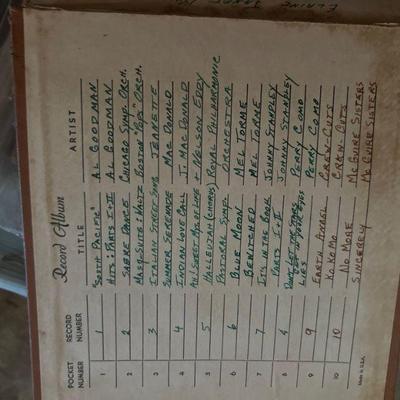 ELAINE
Record Album
POCKET NUMBER RECORD NUMBER TITLE ARTIST
1 1 "SOUTH PACIFIC" AL GOODMAN
HITS: PARTS I + II AL GOODMAN
2 2 SABRE DANCE CHICAGO SYMP. ORCH.
MASQ. SUITE: WALTZ BOSTON "POPS" ORCH.
3 3 ITALIAN STREET SONG JEANETTE
SUMMER SERENADE MAC DONALD
4 4 INDIAN LOVE CALL J. MAC DONALD
AH! SWEET MYST. OF LIFE + NELSON EDDY
5 5 HALLELUJAH (CHORUS) ROYAL PHILHARMONIC
PASTORAL SYMP. ORCHESTRA
6 6 BLUE MOON MEL TORME
BEWITCHED MEL TORME
7 7 IT'S IN THE BOOK JOHNNY STANDLEY
PARTS I + II JOHNNY STANDLEY
8 DON'T LET THE STARS GET IN YOUR EYES PERRY COMO
LIES PERRY COMO
9 9 EARTH ANGEL CREW-CUTS
KO KO MO CREW CUTS
10 10 NO MORE MC GUIRE SISTERS
SINCERELY MC GUIRE SISTERS
Made in U.S.A.